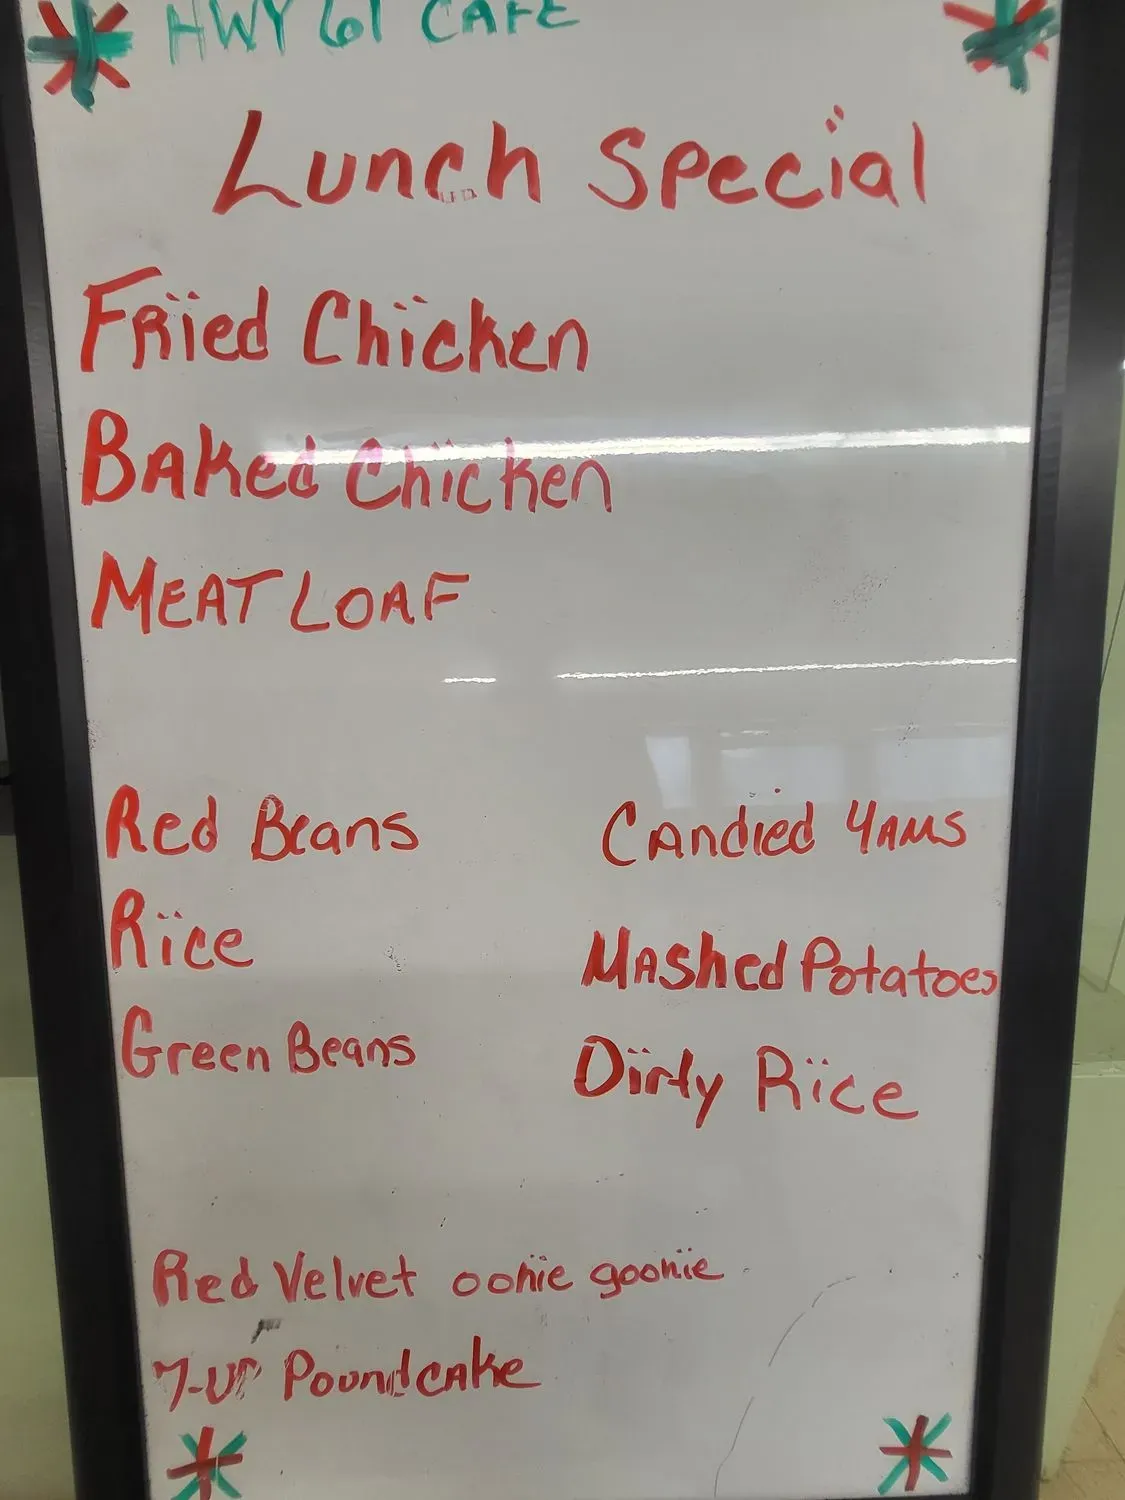 HWY 61 CAFE
Lunch Special
Fried Chicken
Baked Chicken
MEAT LOAF
Red Beans
Candied YAMS
Rice
Mashed Potatoes
Green Beans
Dirty Rice
Red Velvet oonie goonie
7-UP Poundcake